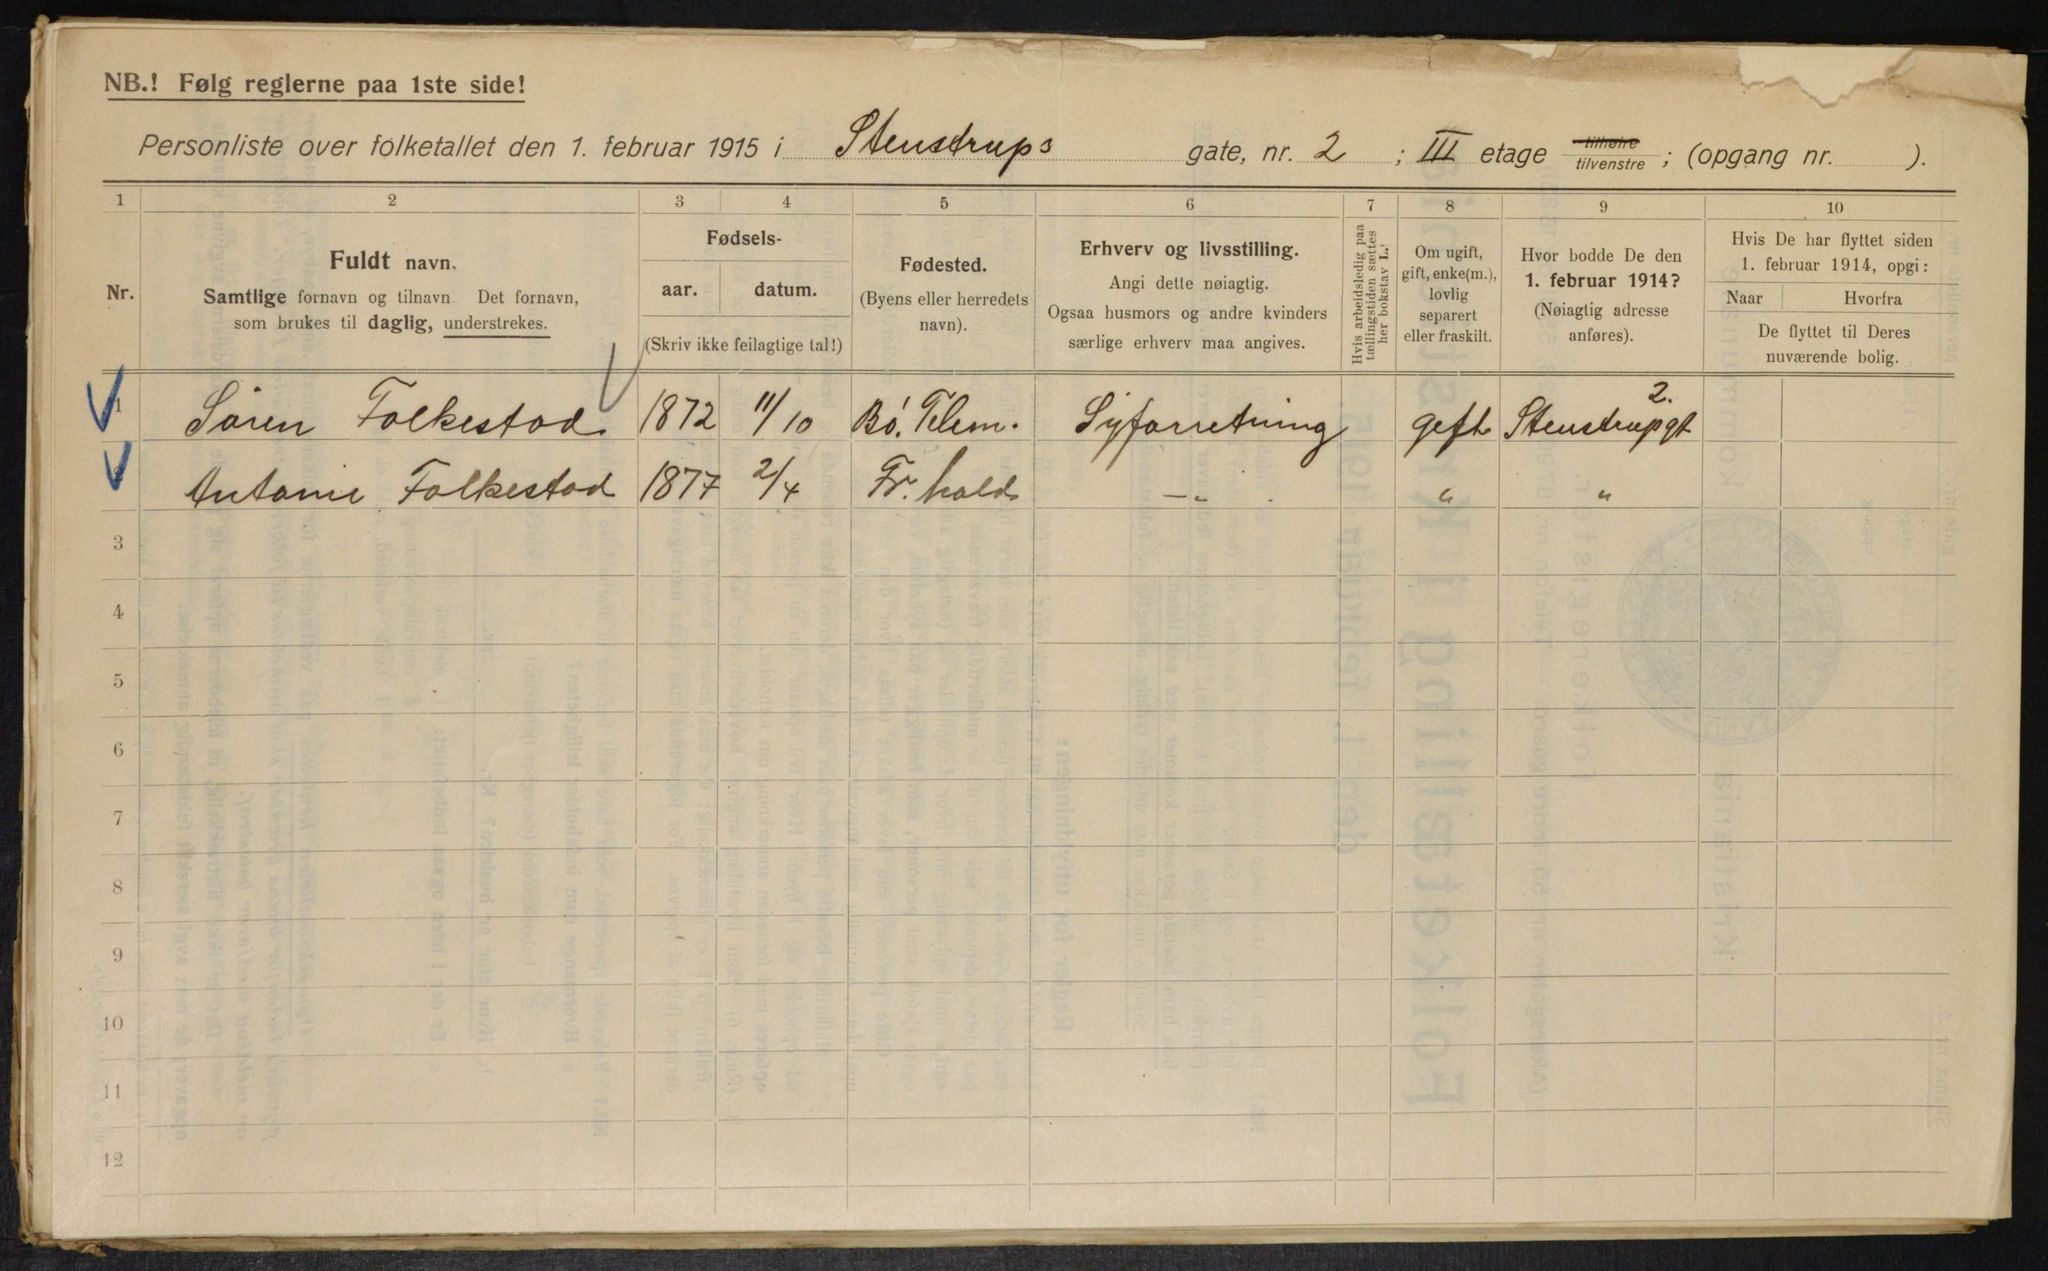 NB.! Følg reglerne paa 1ste side!
Personliste over folketallet den 1. februar 1915 i Stenstrups gate, nr. 2 ; III etage tilhøire tilvenstre ; (opgang nr. ).
1 2 3 4 5 6 7 8 9 10
Nr.
Fuldt navn.
Samtlige fornavn og tilnavn Det fornavn,
som brukes til daglig, understrekes.
Fødsels-
aar. datum.
(Skriv ikke feilagtige tal!)
Fødested.
(Byens eller herredets
navn).
Erhverv og livsstilling.
Angi dette nøiagtig.
Ogsaa husmors og andre kvinders
særlige erhverv maa angives.
Hvis arbeidsledig paa
tællingstiden sættes
her bokstav L.
Om ugift,
gift, enke(m.),
lovlig
separert
eller fraskilt.
Hvor bodde De den
1. februar 1914?
(Nøiagtig adresse
anføres).
Hvis De har flyttet siden
1. februar 1914, opgi:
Naar Hvorfra
De flyttet til Deres
nuværende bolig.
1 Søren Folkestad 1872 11/10 Bø. Telem. Syforretning gift Stenstrupgt 2.
2 Antonie Folkestad 1877 2/4 Fr.hald —"— " "
3
4
5
6
7
8
9
10
11
12